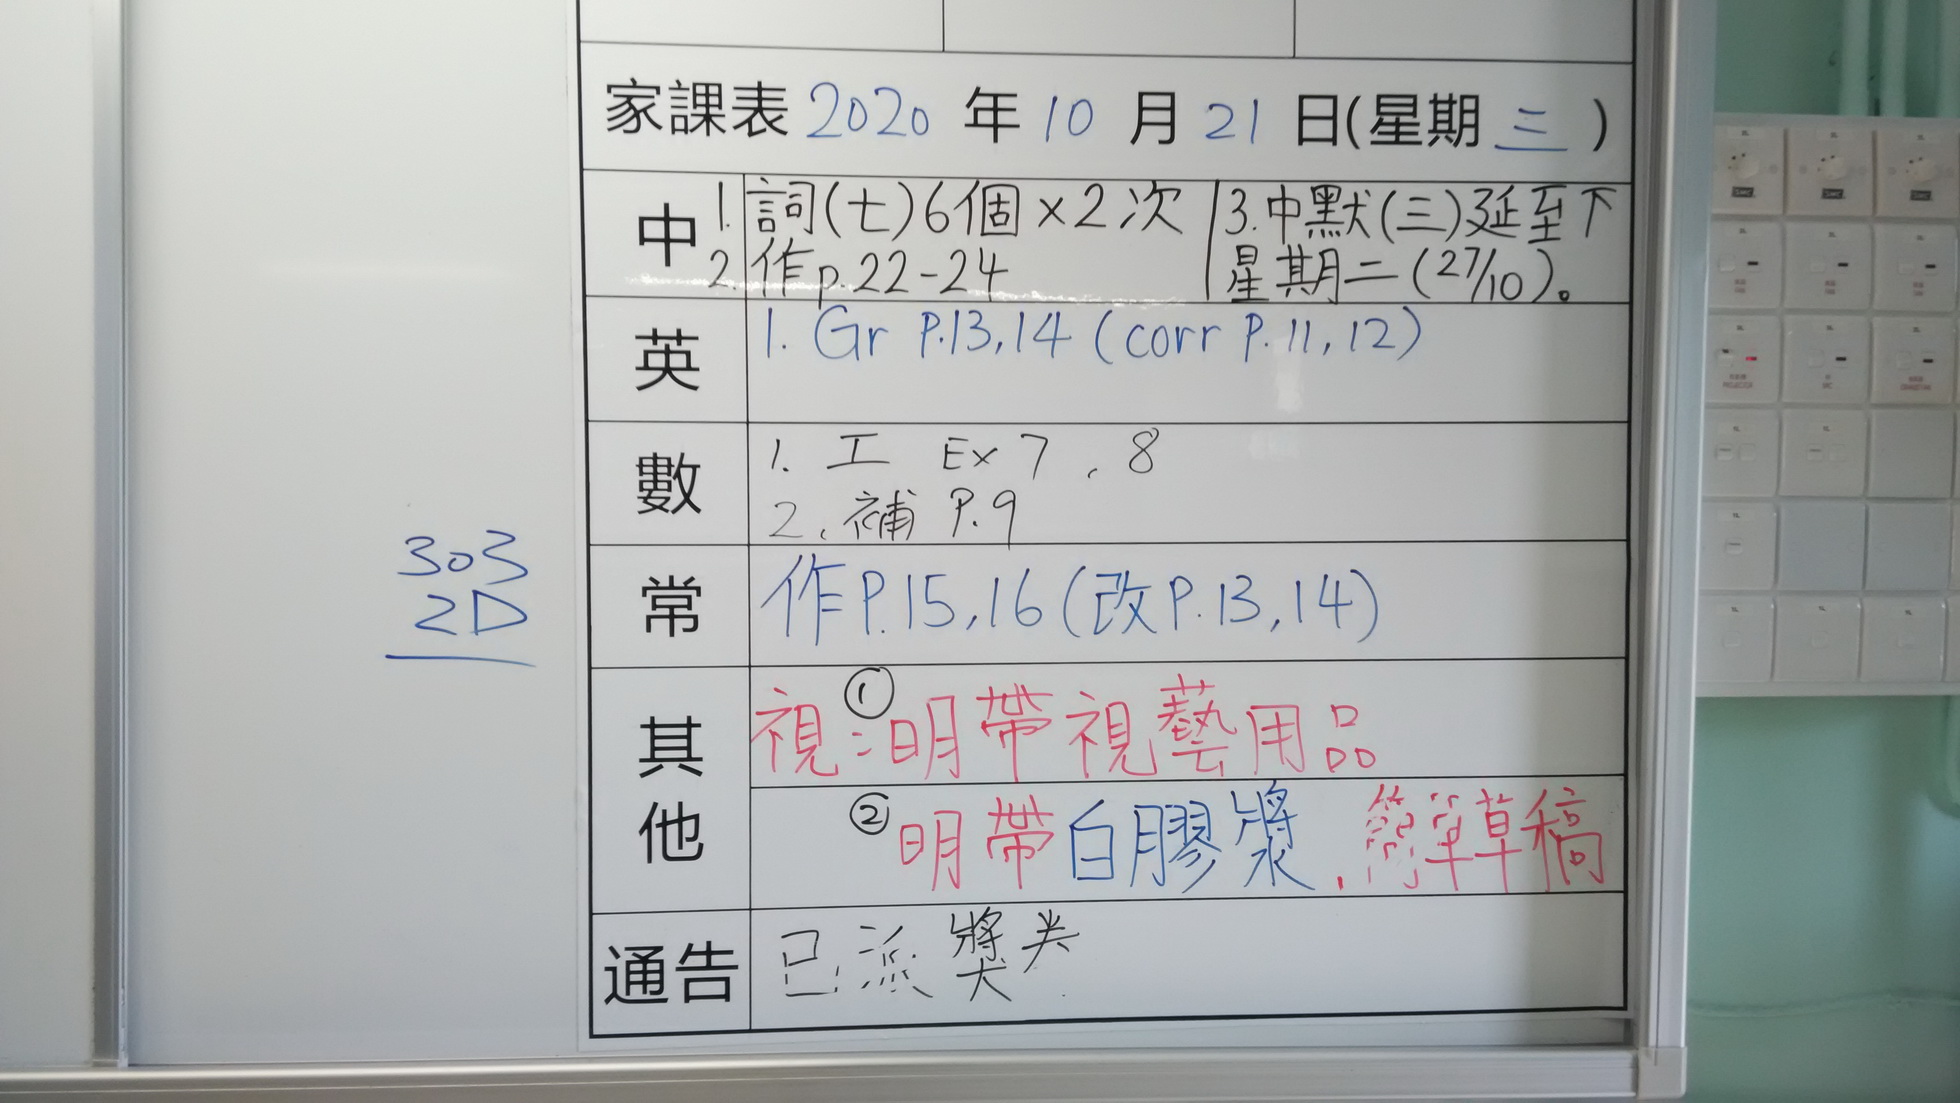 家課表 2020 年 10 月 21 日(星期 三 )
中
1. 詞(七)6個×2次
2. 作p.22-24
3. 中默(三)延至下
星期二(27/10)。
英
1. Gr P.13,14 (corr P.11,12)
數
1. 工 Ex 7、8
2. 補 P.9
常
作P.15,16(改P.13,14)
303
2D
其他
視:①明帶視藝用品
②明帶白膠漿,簡單草稿
通告
已派獎券